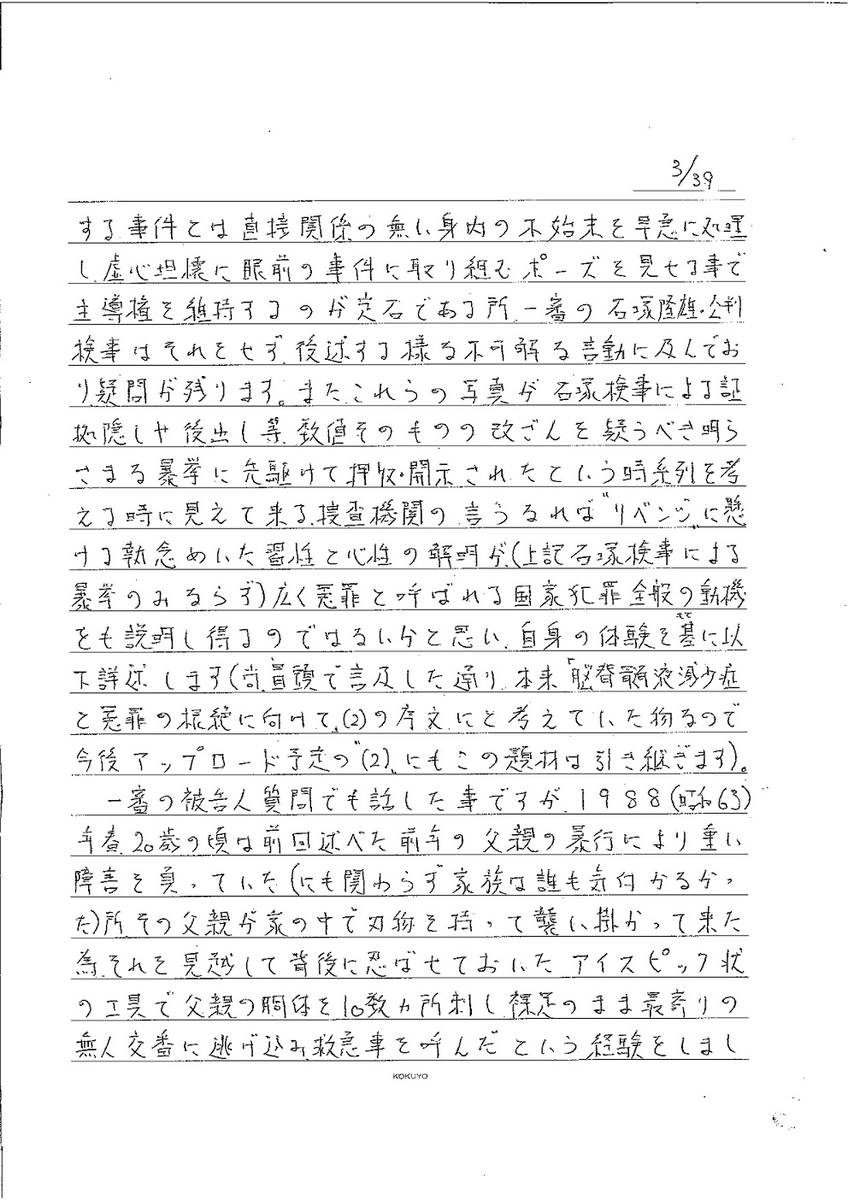 3/39
する事件とは直接関係の無い身内の不始末を早急に処理
し虚心坦懐に眼前の事件に取り組むポーズを見せる事で
主導権を維持するのが定石である所、一審の石塚隆雄・公判
検事はそれをせず、後述する様な不可解な言動に及んでお
り疑問が残ります。またこれらの写真が石塚検事による証
拠隠しや後出し等、数値そのものの改ざんを疑うべき明ら
さまな暴挙に先駆けて押収・開示されたという時系列を考
える時に見えて来る、捜査機関の言うなれば“リベンジ”に懸
ける執念めいた習性と心性の解明が(上記石塚検事による
暴挙のみならず)広く冤罪と呼ばれる国家犯罪全般の動機
をも説明し得るのではないかと思い、自身の体験を基に以
下詳述します(尚、冒頭で言及した通り、本来「脳脊髄液減少症
と冤罪の根絶に向けて、(2)の序文にと考えていた物なので
今後アップロード予定の“(2)、にもこの題材は引き継ぎます)。
一審の被告人質問でも話した事ですが、1988(昭和63)
年春、20歳の頃は前回述べた前年の父親の暴行により重い
障害を負っていた(にも関わらず家族は誰も気付かなかっ
た)所その父親が家の中で刃物を持って襲い掛かって来た
為それを見越して背後に忍ばせておいたアイスピック状
の工具で父親の胴体を10数ヵ所刺し、裸足のまま最寄りの
無人交番に逃げ込み救急車を呼んだという経験をしまし
KOKUYO